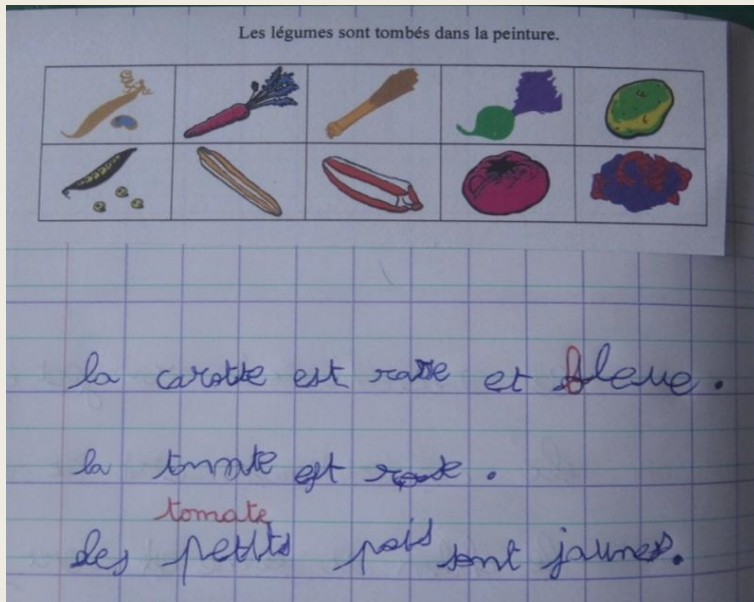 Les légumes sont tombés dans la peinture.
la carotte est rose et bleue.
la tomate est rose.
tomate
des petits pois sont jaunes.